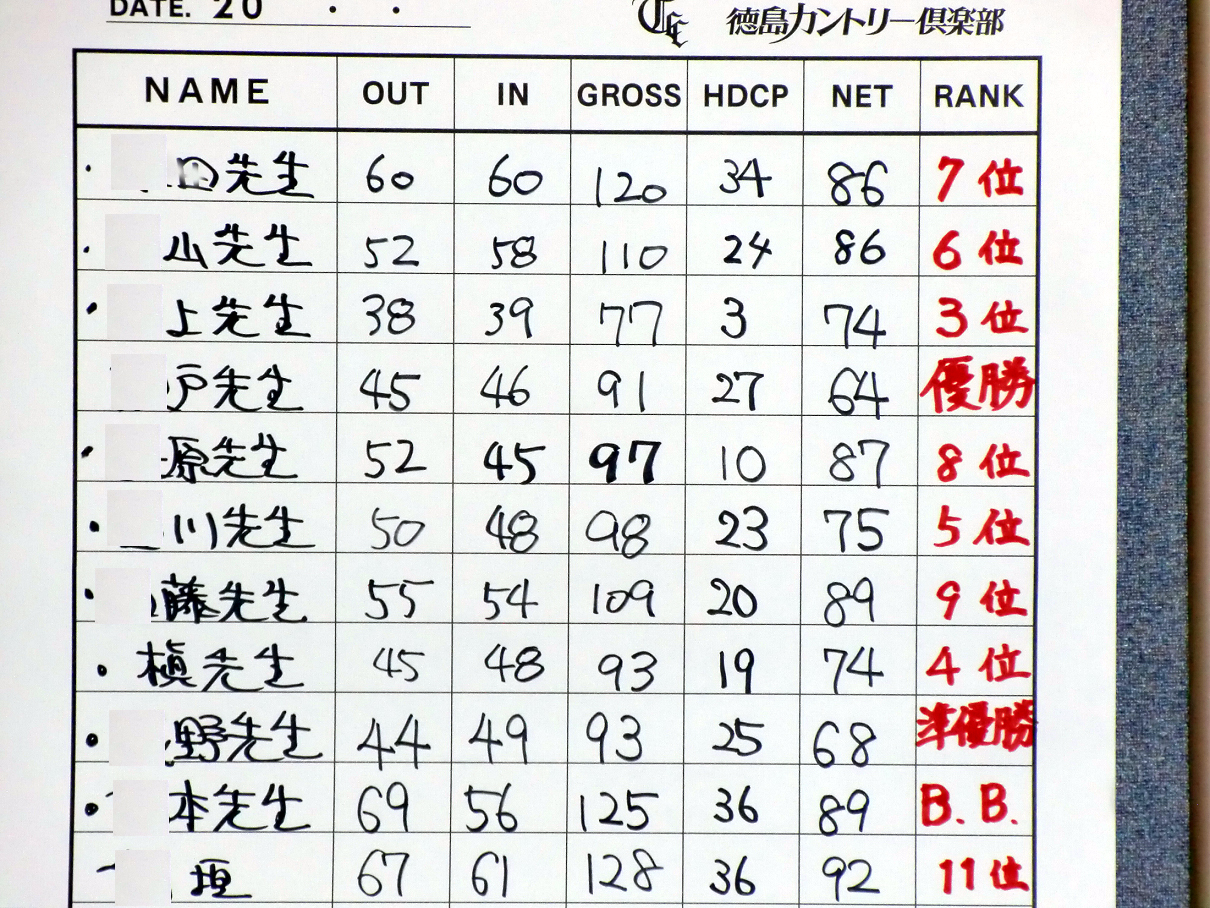 DATE. 20 . .
徳島カントリー倶楽部
NAME OUT IN GROSS HDCP NET RANK
・ 田先生 60 60 120 34 86 7位
・ 山先生 52 58 110 24 86 6位
・ 上先生 38 39 77 3 74 3位
戸先生 45 46 91 27 64 優勝
・ 原先生 52 45 97 10 87 8位
・ 川先生 50 48 98 23 75 5位
・ 藤先生 55 54 109 20 89 9位
・ 槇先生 45 48 93 19 74 4位
・ 野先生 44 49 93 25 68 準優勝
・ 本先生 69 56 125 36 89 B.B.
垣 67 61 128 36 92 11位